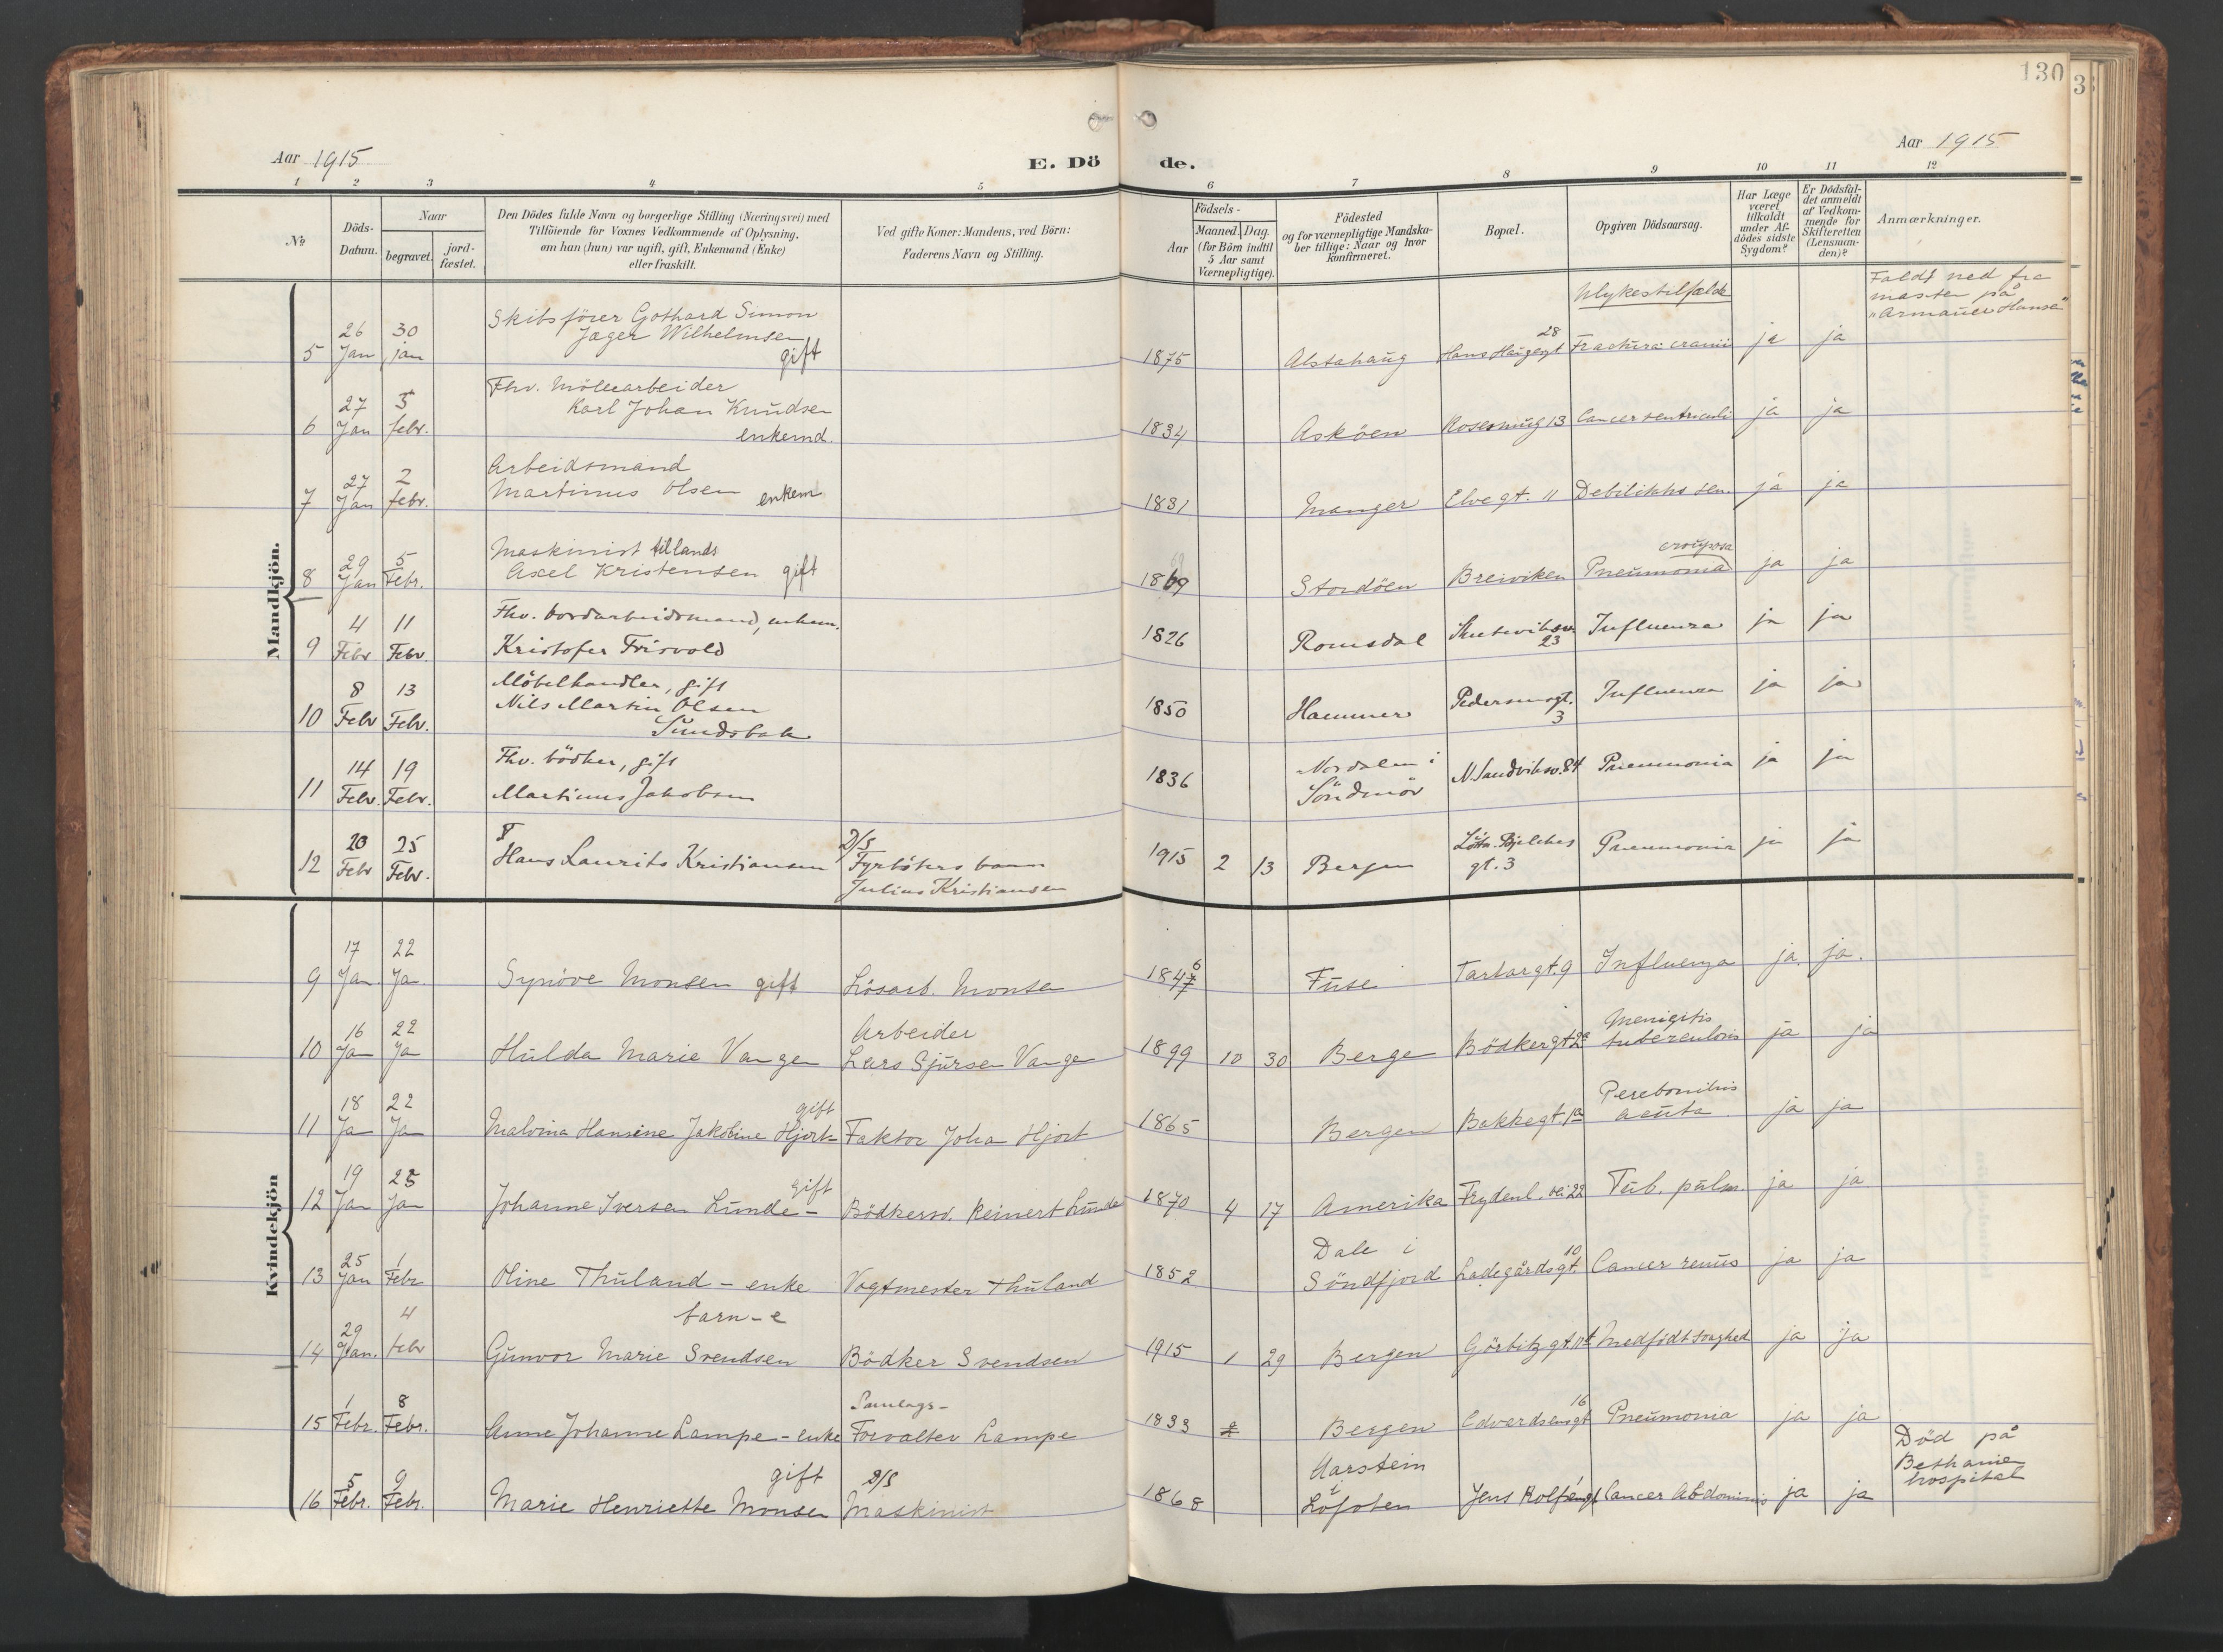 130
Aar 1915
E. Dö
de.
Aar 1915
1 2 3 4 5 6 7 8 9 10 11 12
№
Döds-Datum.
Naar
begravet.
jord-fæstet.
Den Dödes fulde Navn og borgerlige Stilling (Næringsvei) med
Tilföiende for Voxnes Vedkommende af Oplysning,
om han (hun) var ugift, gift, Enkemand (Enke)
eller fraskilt.
Ved gifte Koner: Mandens, ved Börn:
Faderens Navn og Stilling.
Födsels-
Aar
Maaned. Dag.
(for Börn indtil
5 Aar samt
Værnepligtige).
Födested
og for værnepligtige Mandska-
ber tillige: Naar og hvor
konfirmeret.
Bopæl.
Opgiven Dödsaarsag.
Har Læge
været
tilkaldt
under Af-
dödes sidste
Sygdom?
Er Dödsfal-
det anmeldt
af Vedkom-
mende for
Skifteretten
(Lensman-
den)?
Anmærkninger.
Mandkjön.
5 26 Jan 30 jan Skibsförer Gothard Simon
Jæger Wilhelmsen
gift 1875 Alstahaug Hans Haugesgt 28 Ulykestilfælde
Fractura cranii ja ja Faldt ned fra
masten på
"Armauer Hansen"
6 27 Jan 5 febr. Fhv. Möllearbeider
Karl Johan Knudsen
enkemd. 1834 Asköen Rosesmug 13 Cancer ventriculi ja ja
7 27 Jan 2 febr. Arbeidsmand
Martinus Olsen enkem 1831 Manger Elvegt. 11 Debilitas sen. ja ja
8 29 Jan 5 Febr. Maskinist tillands
Axel Kristensen gift 1869 Stordöen Breiviken Pneumonia crouposa ja ja
9 4 Febr 11 Febr. Fhv. bordarbeidsmand, enkem.
Kristofer Frisvold 1826 Romsdal Skuteviksv. 23 Influenza ja ja
10 8 Febr 13 Febr. Möbelhandler, gift
Nils Martin Olsen
Sundsbak 1850 Hammer Pedersmgt. 3 Influenza ja ja
11 14 Febr. 19 Febr. Fhv. bödker, gift
Martinus Jakobsen 1836 Nordalen i
Söndmör N. Sandviksv. 84 Pneumonia ja ja
12 20 Febr 25 Febr. Hans Laurits Kristiansen D/S
Fyrböters barn
Julius Kristiansen 1915 2 13 Bergen gt. 3 Pneumonia ja ja
Kvindekjön
9 17 Jan. 22 Ja. Synöve Monsen gift Lösarb. Monsen 1847 6 Fuse Tartargt. 9 Influenza ja. ja.
10 16 Jan 22 Ja Hulda Marie Vangen Arbeider
Lars Sjursen Vangen 1899 10 30 Bergen Bödkergt 29 Menigitis
tuberculosis ja ja
11 18 Ja 22 Ja Malvina Hansine Jakobine Hjort gift Faktor Johan Hjort 1865 Bergen Bakkegt. 1a Peretonitis
acuta ja ja
12 19 Jan 25 Jan Johanne Iversen Lunde - gift Bödkersv. Reinert Lunde 1870 4 17 Amerika Frydenl. vei 22 Tub. pulm. ja ja
13 25 Jan 1 Febr Oline Thuland - enke Vogtmester Thuland 1852 Dale i
Söndfjord Ladegårdsgt. 10 Cancer renus ja ja
14 29 Jan. 4 febr barn-e
Gunvor Marie Svendsen Bödker Svendsen 1915 1 29 Bergen Görbitzgt. Medfödt svaghed ja ja
15 1 Febr. 8 Febr. Anne Johanne Lampe - enke Samlags-
Forvalter Lampe 1833 2 Bergen Edvardsensgt 16 Pneumonia ja ja
16 5 Febr. 9 Febr. Marie Henriette Monsen gift D/S
Maskinist 1868 Harstein
i
Lofoten Jens Rolfsengt Cancer Abdominis ja ja Död på
Bethanien
hospital